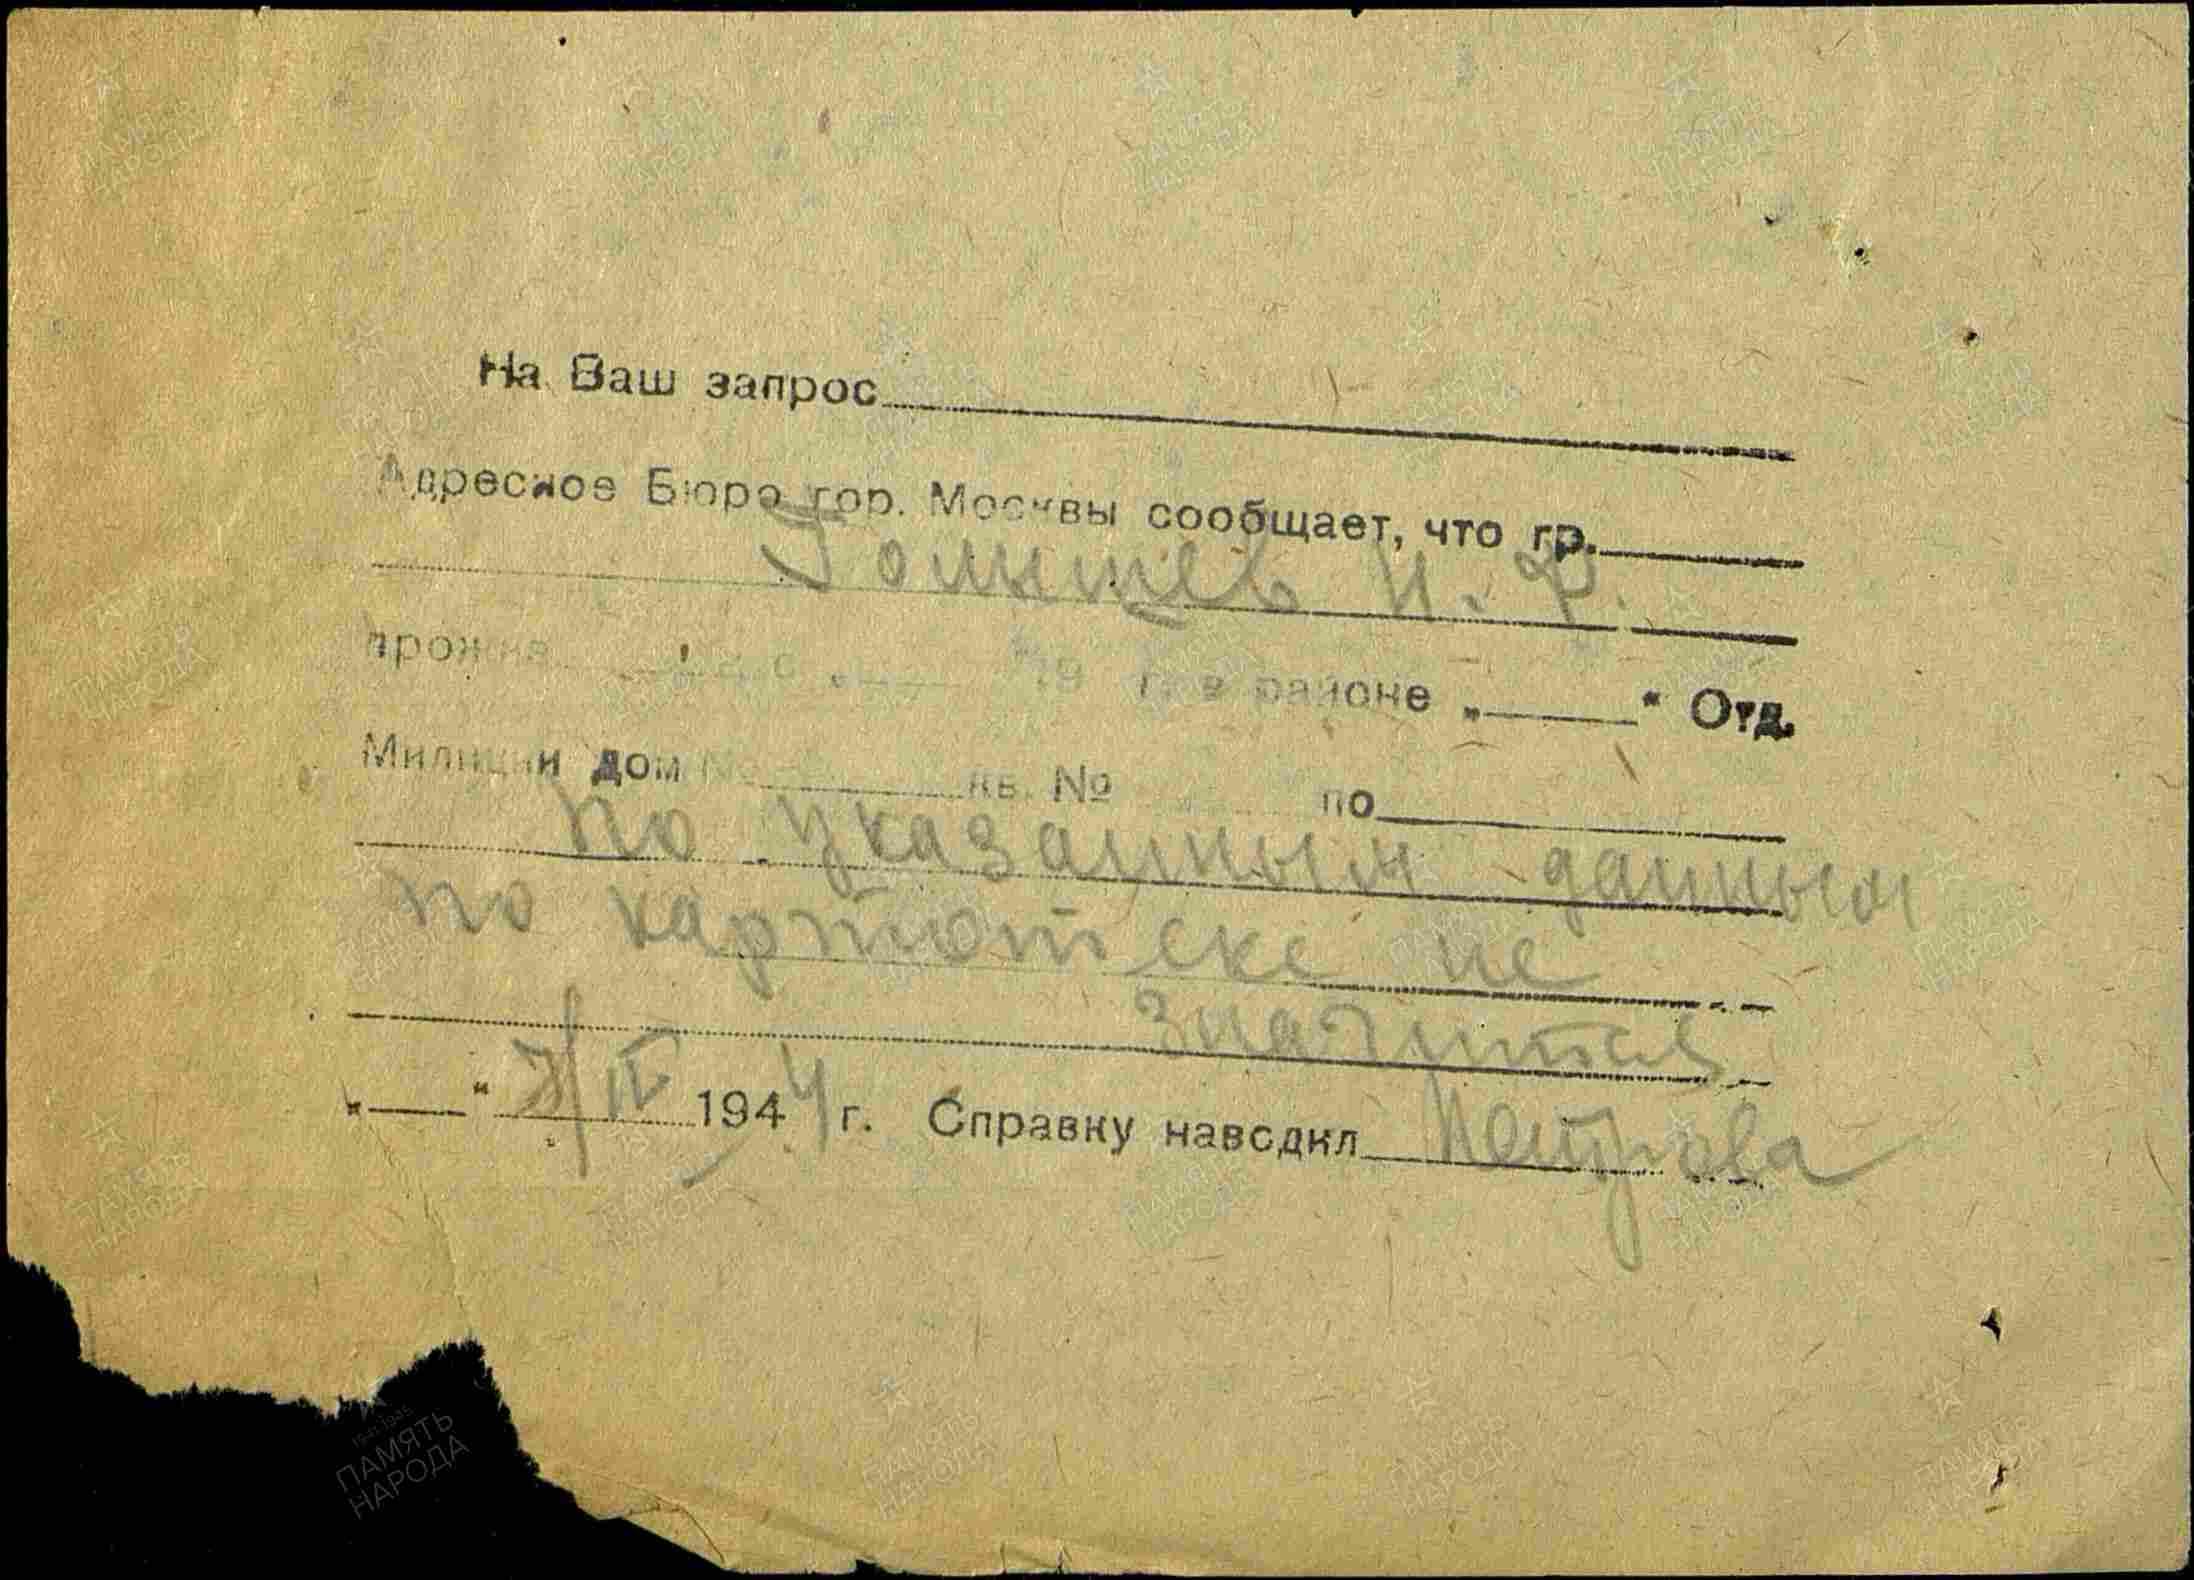 На Ваш запрос
Адресное Бюро гор. Москвы сообщает, что гр.
Голышев И. Ф.
19 г. в районе „ “ Отд.
Милиции дом № кв. № по
по указанным данным
по картотеке не
значится
„ “ 7/IV 1944 г. Справку наводил Петрова